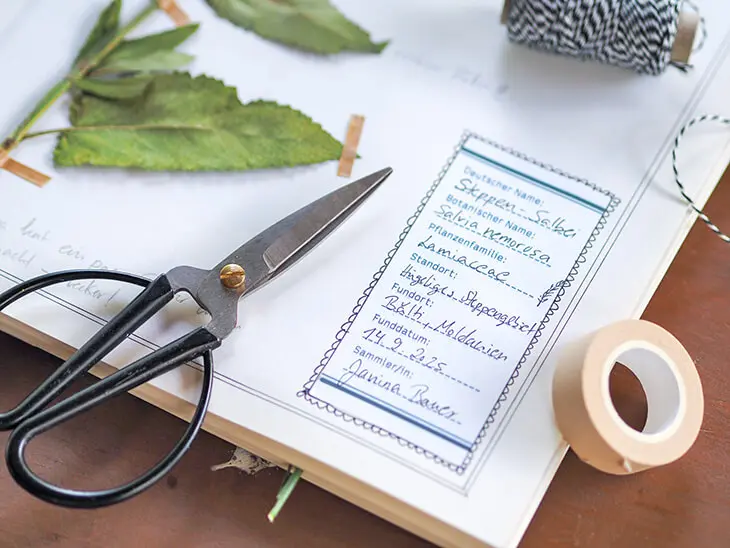 Deutscher Name:
Steppen-Salbei
Botanischer Name:
Salvia nemorosa
Pflanzenfamilie:
Lamiaceae
Standort:
Hügeliges Steppengebiet
Fundort:
Bălți, Moldawien
Funddatum:
14.9.2025
Sammler/in:
Janina Bauer